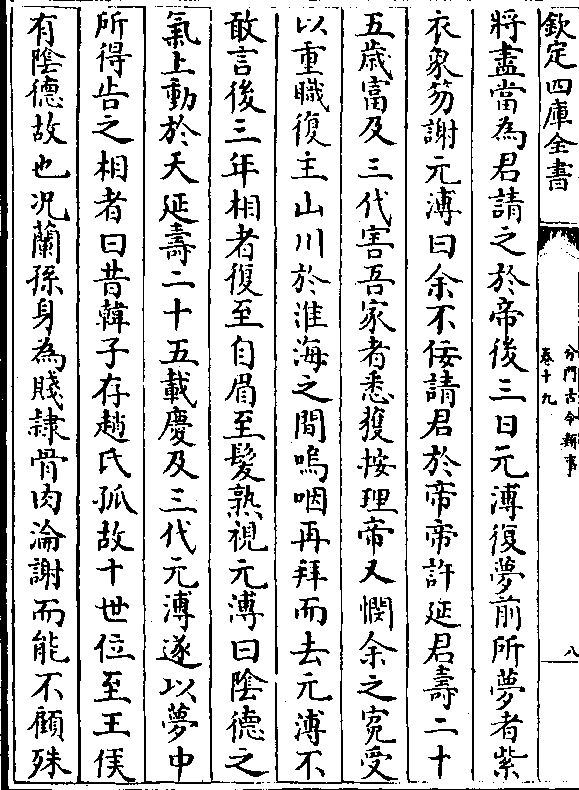 欽定四庫全書
分門古今類事
卷十九
八
將盡當為君請之於帝後三日元溥復夢前所夢者紫
衣象笏謝元溥曰余不佞請君於帝帝許延君壽二十
五歲富及三代害吾家者悉獲按理帝又憫余之寃受
以重職復主山川於淮海之間嗚咽再拜而去元溥不
敢言後三年相者復至自眉至髮熟視元溥曰陰德之
氣上動於天延壽二十五載慶及三代元溥遂以夢中
所得告之相者曰昔韓子存趙氏孤故十世位至王侯
有陰德故也况蘭孫身為賤隸骨肉淪謝而能不顧殊